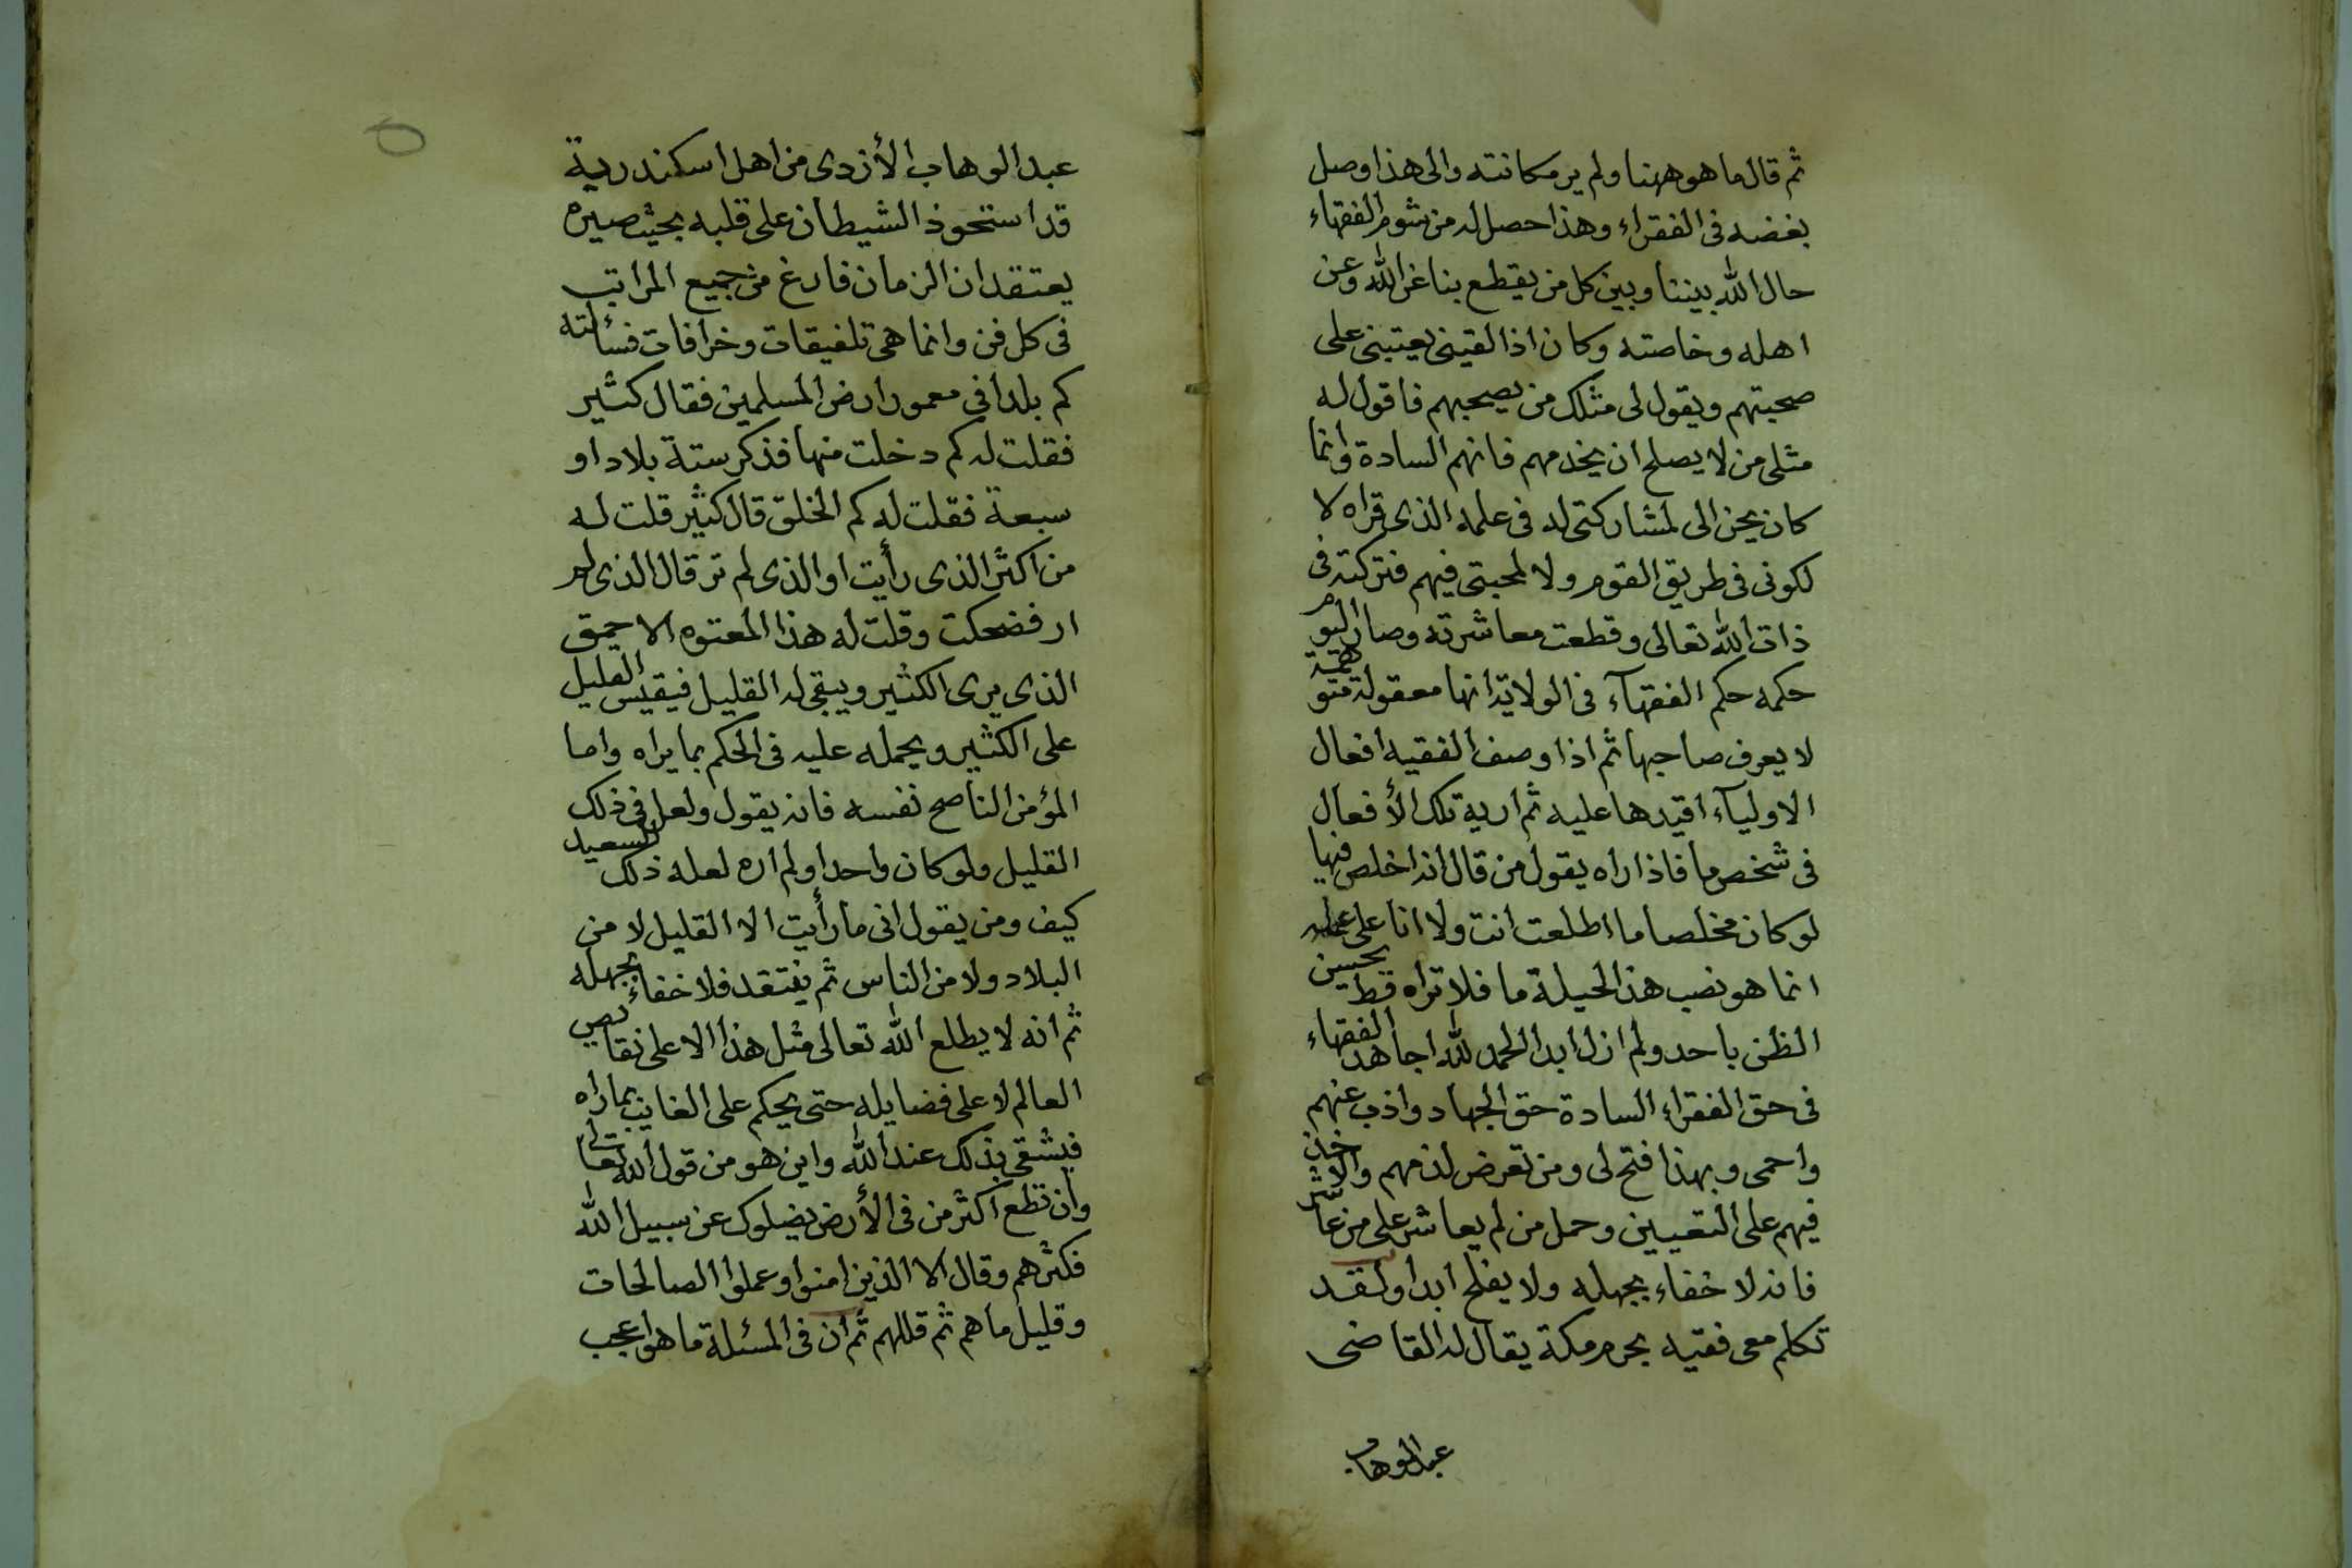 ثم قال ما هو ههنا ولم ير مكانته والى هذا وصل
بغضه فى الفقراء وهذا حصل له من شوم الفقهاء
حال الله بيننا وبين كل من يقطع بنا عن الله وعن
اهله وخاصته وكان اذا لقينى يعتبنى على
صحبتهم ويقول لى مثلك من يصحبهم فاقول له
مثلى من لا يصلح ان يخدمهم فانهم السادة وانما
كان يحن الى لمشاركتى له فى علمه الذى قراه لا
لكونى فى طريق القوم ولا لمحبتى فيهم فتركته فى
ذات الله تعالى وقطعت معاشرته وصار اليوم
حكمه حكم الفقهآء فى الولاية انها معقولة متوهمة
لا يعرف صاحبها ثم اذا وصف الفقيه افعال
الاوليآء اقيدها عليه ثم اريه تلك الأفعال
فى شخص ما فاذا راه يقول من قال انه اخلص فيها
لو كان مخلصا ما اطلعت انت ولا انا على عمله
انما هو نصب هذ الحيلة ما فلا تراه قط يحسن
الظن باحد ولم ازل ابدا لحمد لله اجاهد الفقهاء
فى حق الفقراء السادة حق الجهاد واذب عنهم
واحمى وبهذا فتح لى ومن تعرض لذمهم والاخذ
فيهم على التعيين وحمل من لم يعاشر على من عاشر
فانه لا خفاء بجهله ولا يفلح ابدا ولقد
تكلم معى فقيه بحرم مكة يقال له القاضى
عبد الوهاب
عبد الوهاب الأزدى من اهل اسكندرية
قد استحوذ الشيطان على قلبه بحيث صيره
يعتقد ان الزمان فارغ من جميع المراتب
فى كل فن وانما هى تلفيقات وخرافات فسألته
كم بلدا فى معمور ارض المسلمين فقال كثير
فقلت له كم دخلت منها فذكر ستة بلاد او
سبعة فقلت له كم الخلق قال كثير قلت له
من اكثر الذى رأيت او الذى لم تر قال الذى لم
ار فضحكت وقلت له هذا المعتوه الاحمق
الذى يرى الكثير ويبقى له القليل فيقيس القليل
على الكثير ويحمله عليه فى الحكم بما يراه واما
المؤمن الناصح نفسه فانه يقول ولعل فى ذلك
القليل ولو كان واحدا ولم اره لعله ذلك السعيد
كيف ومن يقول انى ما رأيت الا القليل لا من
البلاد ولا من الناس ثم يفتقد فلا خفاء بجهله
ثم انه لا يطلع الله تعالى مثل هذا الا على نقايص
العالم لا على فضايله حتى يحكم على الغايب بما راه
فيشقى بذلك عند الله واين هو من قول الله تعالى
وان تطع اكثر من فى الأرض يضلوك عن سبيل الله
فكثرهم وقال الا الذين امنوا وعملوا الصالحات
وقليل ما هم ثم قللهم ثم ان فى المسئلة ما هو اعجب